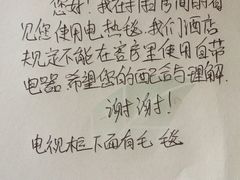 您好！我在打扫房间的看
见您使用电热毯，我们酒店
规定不能在客房里使用自带
电器，希望您的配合与理解.
谢谢！
电视柜下面有毛毯